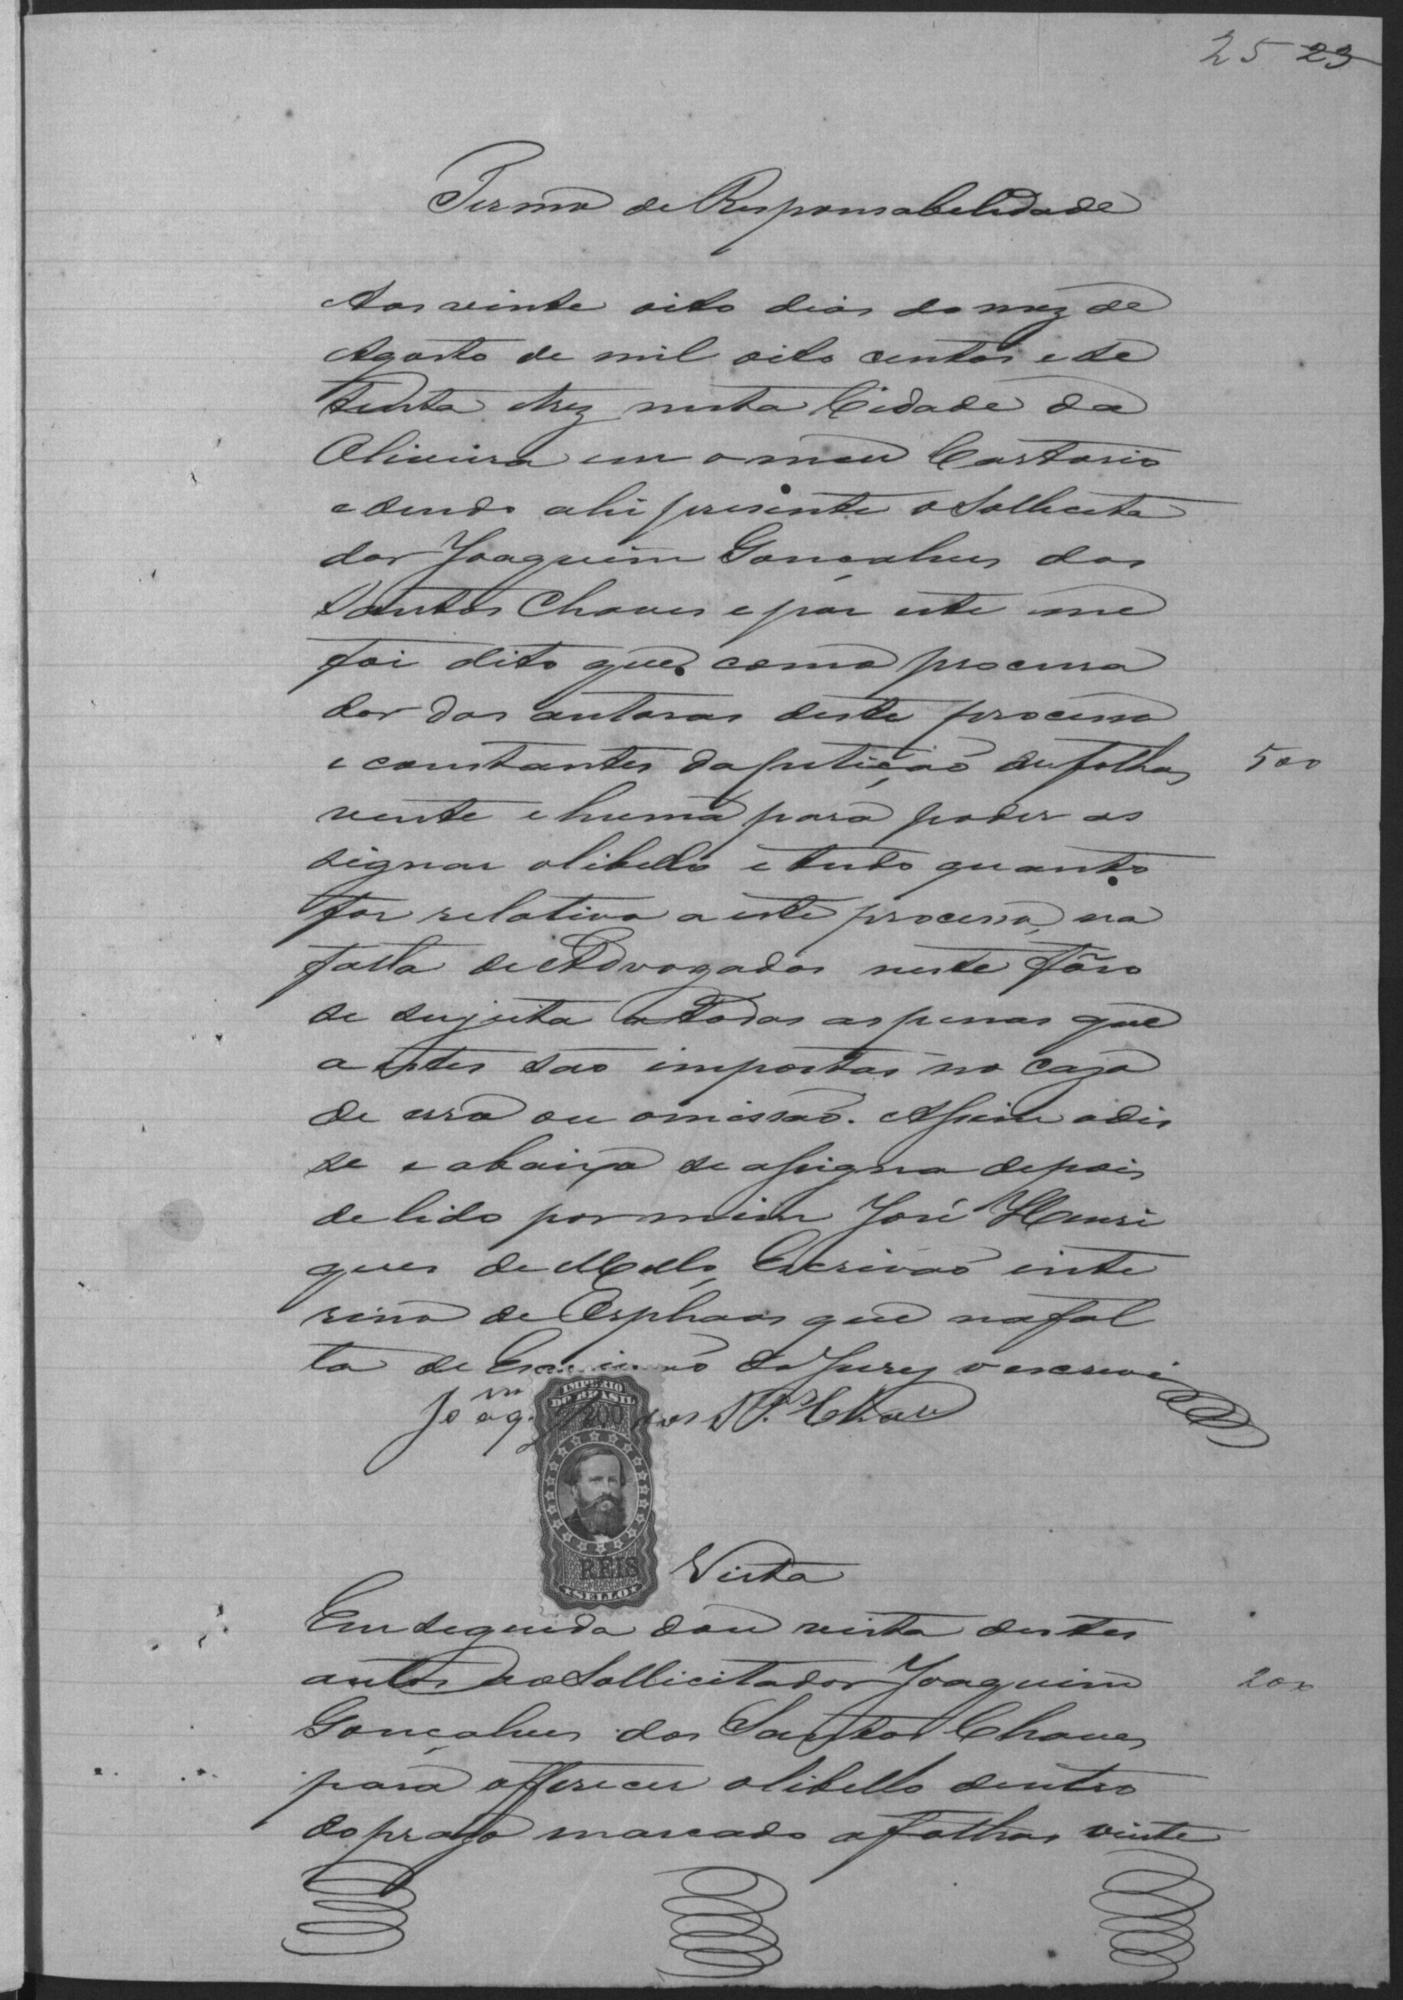 25 23
Termo de Responsabelidade
Aos vinte oito dias do mez de
Agosto de mil oito centos e se
tenta e trez nesta Cidade da
Oliveira em o meu Cartorio
e sendo ahi presente o Sollicita
dor Joaquim Gonçalves dos
Santos Chaves e por este me
foi dito que como procura
dor dos autoras deste processo
e constantes da petição de folhas
500
vente e huma para poder as
signar o libello e tudo quanto
for relativo a este processo, na
falta de Advogados neste fôro
se sujeita a todas as penas que
a estes são impostas no cazo
de erro ou omissão. Assim o dis
se e abaixo se assigna depois
de lido por mim José Henri
ques de Mello, Escrivão inte
rino de Orphaos que na fal
ta de Escrivão do Jury o escrevi
Joaqm Glz dos Stos Chaves
IMPERIO
DO BRASIL
200
REIS
SELLO
Vista
Em seguida dou vista destes
autos ao Sollicitador Joaquim
200
Gonçalves dos Santos Chaves
para offerecer o libello dentro
do prazo marcado a folhas vinte